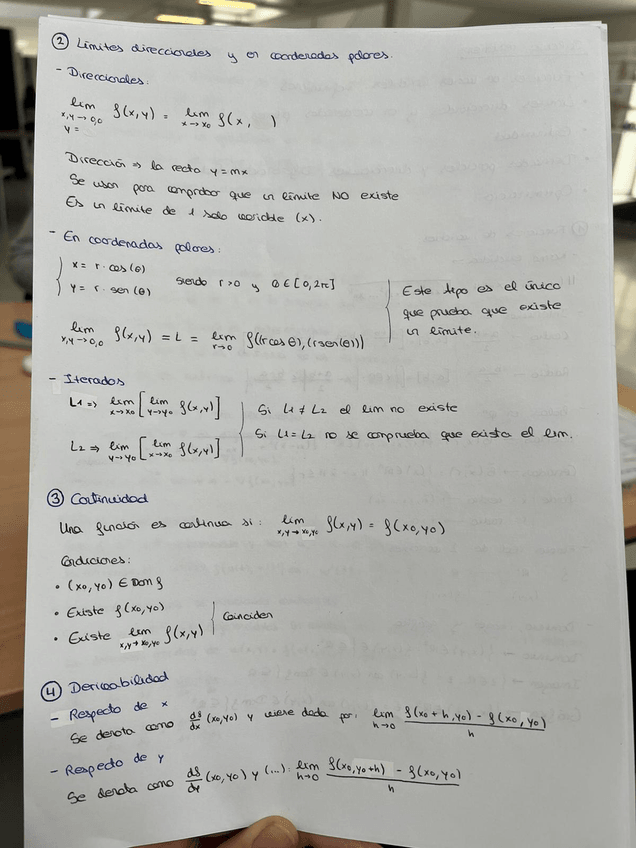 ② Límites direccionales y en coordenadas polares.
- Direccionales:
lim x,y→0,0 y= f(x,y) = lim x→x0 f(x, )
Dirección ⇒ la recta y=mx
Se usan para comprobar que un límite NO existe
Es un límite de 1 sola variable (x).
- En coordenadas polares:
x = r · cos(θ)
y = r · sen(θ)
siendo r>0 y θ∈[0,2π]
lim x,y→0,0 f(x,y) = L = lim r→0 f((r cos θ),(r sen(θ))
Este tipo es el único
que prueba que existe
un límite.
- Iterados
L1 ⇒ lim x→x0 [lim y→y0 f(x,y)]
L2 ⇒ lim y→y0 [lim x→x0 f(x,y)]
Si L1 ≠ L2 el lim no existe
Si L1 = L2 no se comprueba que exista el lim.
③ Continuidad
Una función es continua si: lim x,y→x0,y0 f(x,y) = f(x0,y0)
Condiciones:
• (x0,y0) ∈ Dom f
• Existe f(x0,y0)
• Existe lim x,y→x0,y0 f(x,y)
Coinciden
④ Derivabilidad
- Respecto de x
Se denota como df/dx (x0,y0) y viene dada por: lim h→0 f(x0+h,y0) - f(x0,y0) / h
- Respecto de y
Se denota como df/dy (x0,y0) y (...): lim h→0 f(x0,y0+h) - f(x0,y0) / h